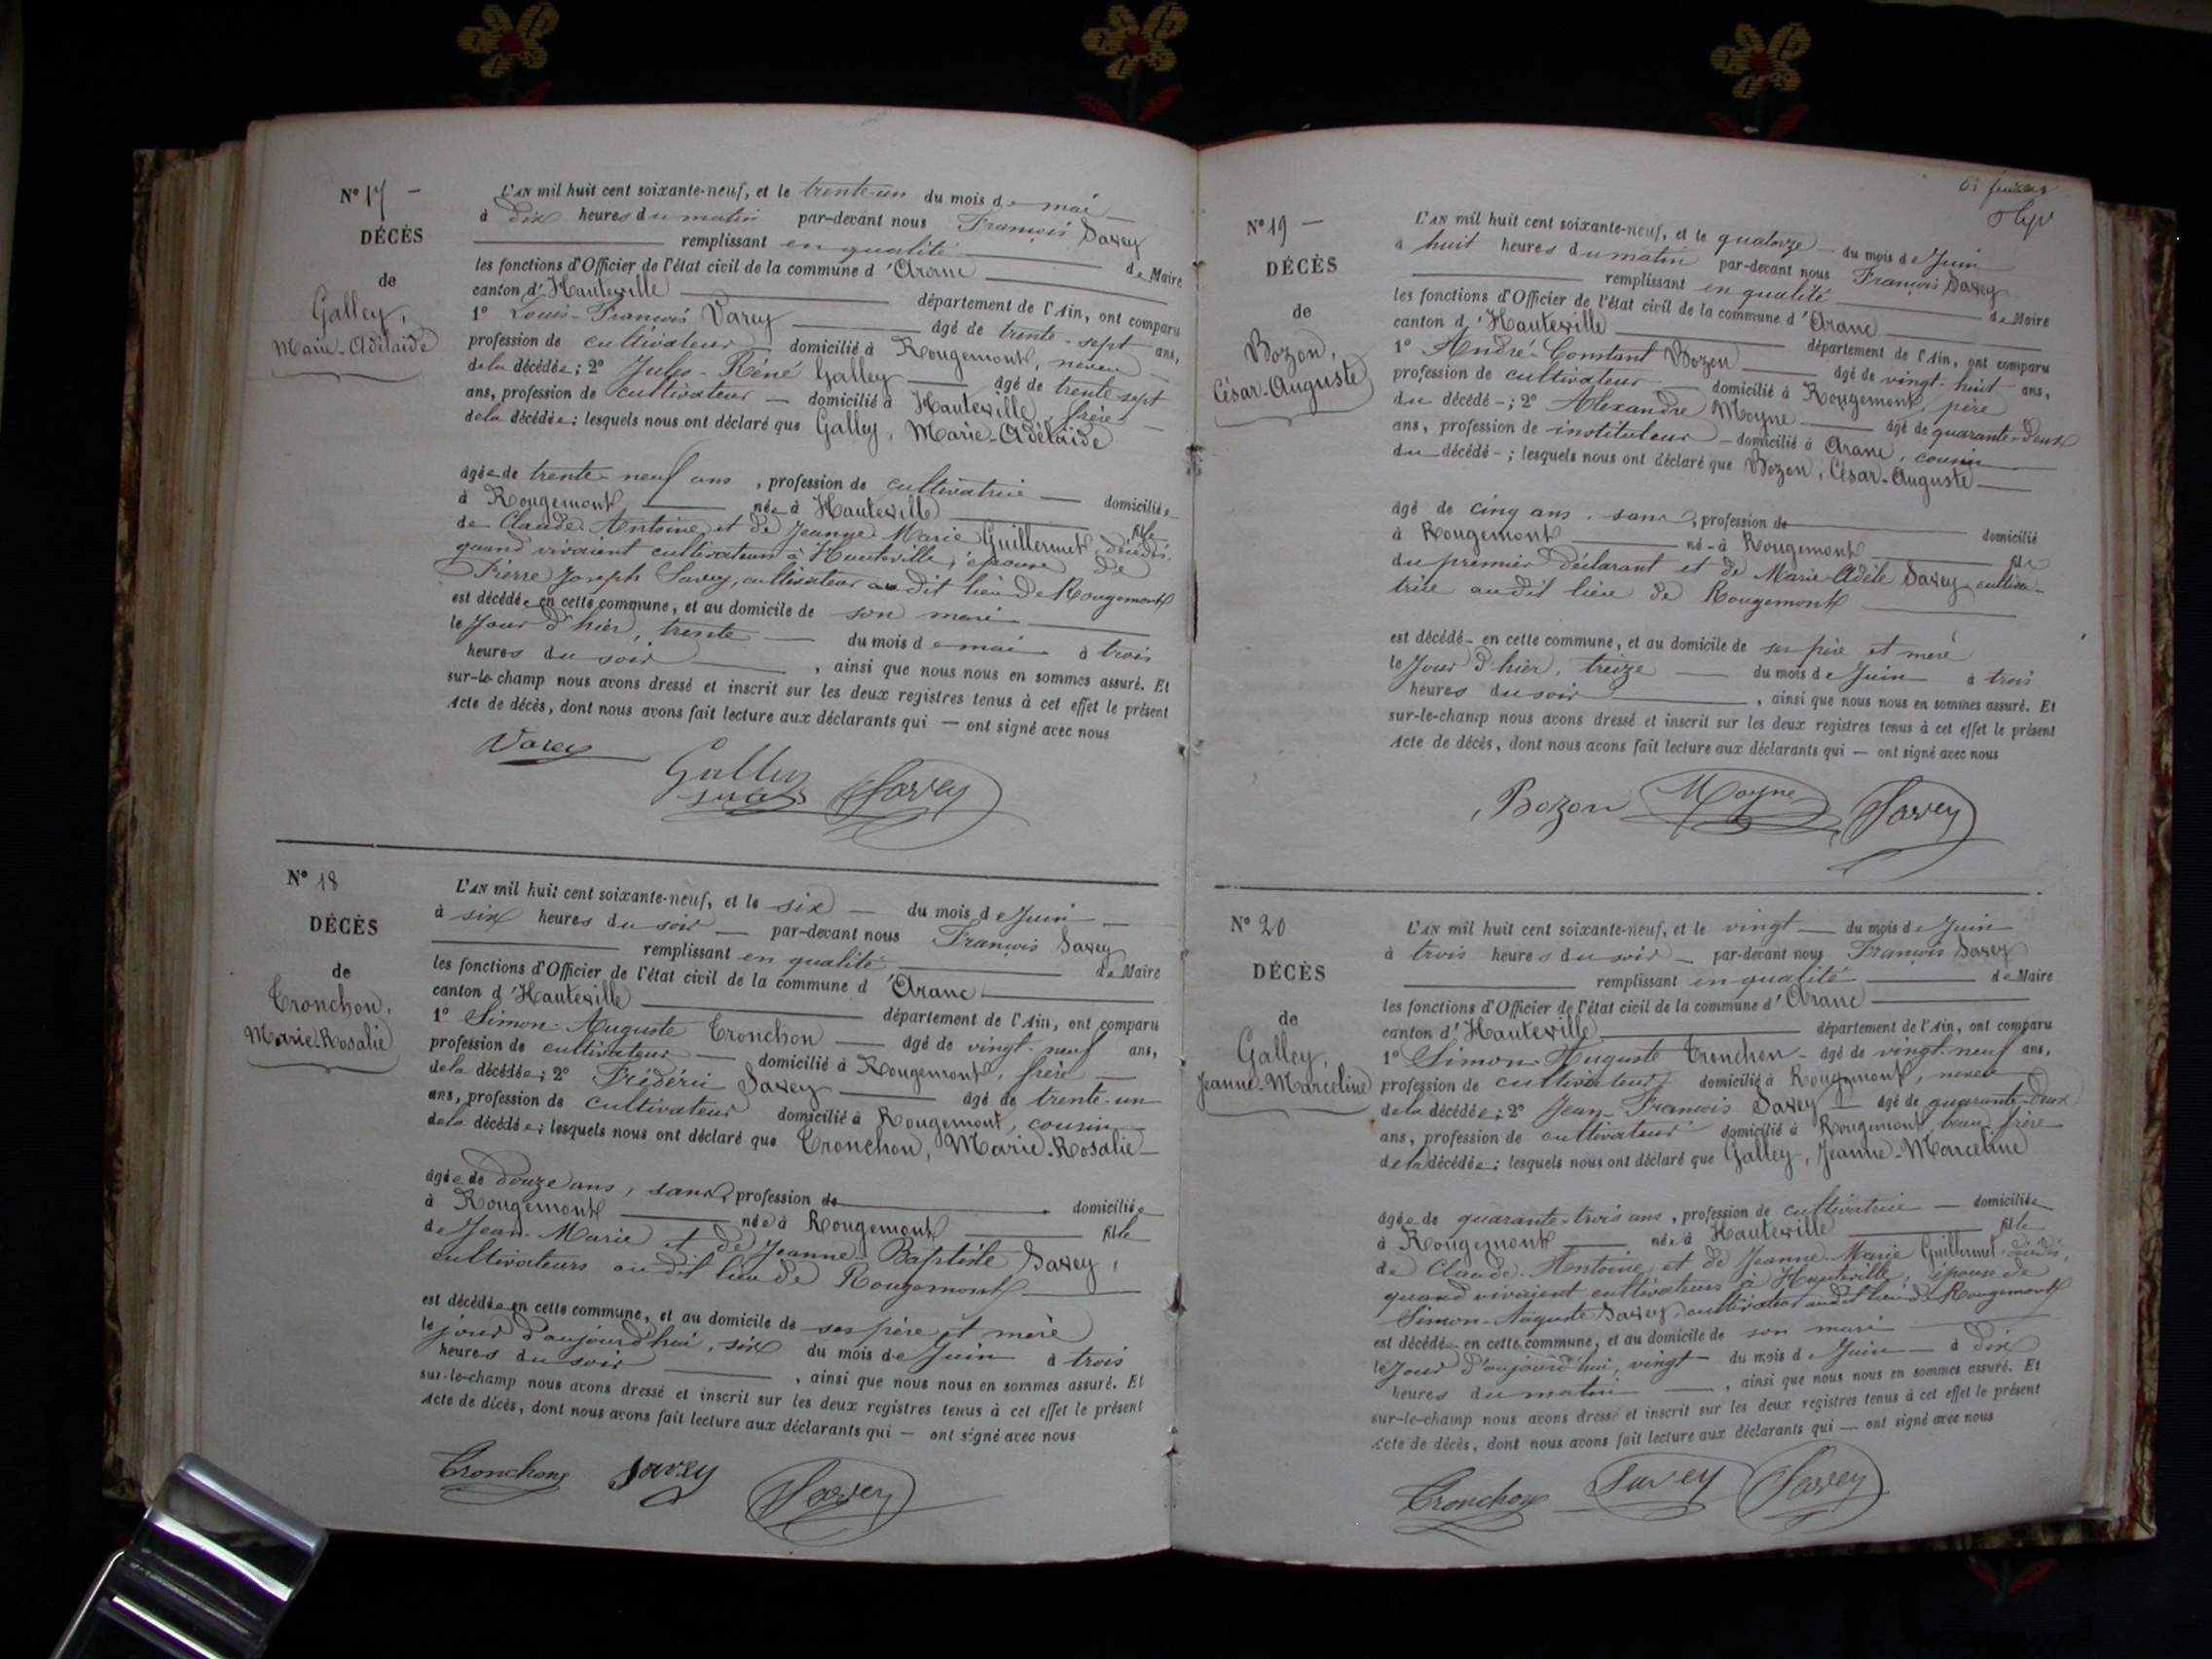 N° 17 —
DÉCÈS
de
Galley,
Marie-Adélaïde
L'AN mil huit cent soixante-neuf, et le trente-un du mois de mai
à dix heures du matin par-devant nous François Savey
remplissant en qualité de Maire
les fonctions d'Officier de l'état civil de la commune d'Aranc
canton d'Hauteville département de l'Ain, ont comparu
1° Louis-François Varey âgé de trente-sept ans,
profession de cultivateur domicilié à Rougemont, neveu
de la décédée; 2° Jules-Réné Galley âgé de trente sept
ans, profession de cultivateur — domicilié à Hauteville, frère
de la décédée; lesquels nous ont déclaré que Galley, Marie-Adélaïde
âgée de trente-neuf ans, profession de cultivatrice — domiciliée
à Rougemont née à Hauteville fille
de Claude-Antoine et de Jeanne-Marie Guillermet, décédés,
quand vivaient cultivateurs à Hauteville, épouse de
Pierre Joseph Savey, cultivateur au dit lieu de Rougemont
est décédée en cette commune, et au domicile de son mari
le Jour d'hier, trente — du mois de mai à trois
heures du soir, ainsi que nous nous en sommes assuré. Et
sur-le-champ nous avons dressé et inscrit sur les deux registres tenus à cet effet le présent
Acte de décès, dont nous avons fait lecture aux déclarants qui — ont signé avec nous
Varey
Galley
Savey
N° 18
DÉCÈS
de
Tronchon,
Marie-Rosalie
L'AN mil huit cent soixante-neuf, et le six — du mois de Juin —
à six heures du soir — par-devant nous François Savey
remplissant en qualité de Maire
les fonctions d'Officier de l'état civil de la commune d'Aranc
canton d'Hauteville département de l'Ain, ont comparu
1° Simon-Auguste Tronchon — âgé de vingt-neuf ans,
profession de cultivateur — domicilié à Rougemont, frère —
de la décédée; 2° Frédéric Savey âgé de trente-un
ans, profession de cultivateur domicilié à Rougemont, cousin
de la décédée; lesquels nous ont déclaré que Tronchon, Marie-Rosalie —
âgée de douze ans, sans profession de domiciliée
à Rougemont née à Rougemont fille
de Jean-Marie et de Jeanne-Baptiste Savey,
cultivateurs au dit lieu de Rougemont
est décédée en cette commune, et au domicile de ses père et mère
le jour d'aujourd'hui, six du mois de Juin à trois
heures du soir, ainsi que nous nous en sommes assuré. Et
sur-le-champ nous avons dressé et inscrit sur les deux registres tenus à cet effet le présent
Acte de décès, dont nous avons fait lecture aux déclarants qui — ont signé avec nous
Tronchon Savey Savey
N° 19 —
DÉCÈS
de
Bozon,
César-Auguste
L'AN mil huit cent soixante-neuf, et le quatorze — du mois de Juin
à huit heures du matin par-devant nous François Savey
remplissant en qualité de Maire
les fonctions d'Officier de l'état civil de la commune d'Aranc
canton d'Hauteville département de l'Ain, ont comparu
1° André-Constant Bozon âgé de vingt-huit ans,
profession de cultivateur — domicilié à Rougemont, père
du décédé -; 2° Alexandre Moyne — âgé de quarante-deux
ans, profession de instituteur — domicilié à Aranc, cousin
du décédé -; lesquels nous ont déclaré que Bozon, César-Auguste —
âgé de cinq ans, sans profession de domicilié
à Rougemont né - à Rougemont fils
du premier déclarant et de Marie-Adèle Savey cultiva-
trice audit lieu de Rougemont
est décédé - en cette commune, et au domicile de ses père et mère
le Jour d'hier, treize — du mois de Juin à trois
heures du soir, ainsi que nous nous en sommes assuré. Et
sur-le-champ nous avons dressé et inscrit sur les deux registres tenus à cet effet le présent
Acte de décès, dont nous avons fait lecture aux déclarants qui — ont signé avec nous
Bozon Moyne Savey
N° 20
DÉCÈS
de
Galley,
Jeanne-Marceline
L'AN mil huit cent soixante-neuf, et le vingt — du mois de Juin
à trois heures du soir — par-devant nous François Savey
remplissant en qualité de Maire
les fonctions d'Officier de l'état civil de la commune d'Aranc
canton d'Hauteville département de l'Ain, ont comparu
1° Simon-Auguste Tronchon - âgé de vingt-neuf ans,
profession de cultivateur domicilié à Rougemont, neveu
de la décédée; 2° Jean-François Savey — âgé de quarante-deux
ans, profession de cultivateur domicilié à Rougemont, beau-frère
de la décédée; lesquels nous ont déclaré que Galley, Jeanne-Marceline
âgée de quarante-trois ans, profession de cultivatrice — domiciliée
à Rougemont née à Hauteville fille
de Claude-Antoine et de Jeanne-Marie Guillermet décédés,
quand vivaient cultivateurs à Hauteville, épouse de
Simon-Auguste Savey, cultivateur audit lieu de Rougemont
est décédée en cette commune, et au domicile de son mari
le Jour d'aujourd'hui, vingt du mois de Juin — à dix
heures du matin —, ainsi que nous nous en sommes assuré. Et
sur-le-champ nous avons dressé et inscrit sur les deux registres tenus à cet effet le présent
Acte de décès, dont nous avons fait lecture aux déclarants qui — ont signé avec nous
Tronchon Savey Savey